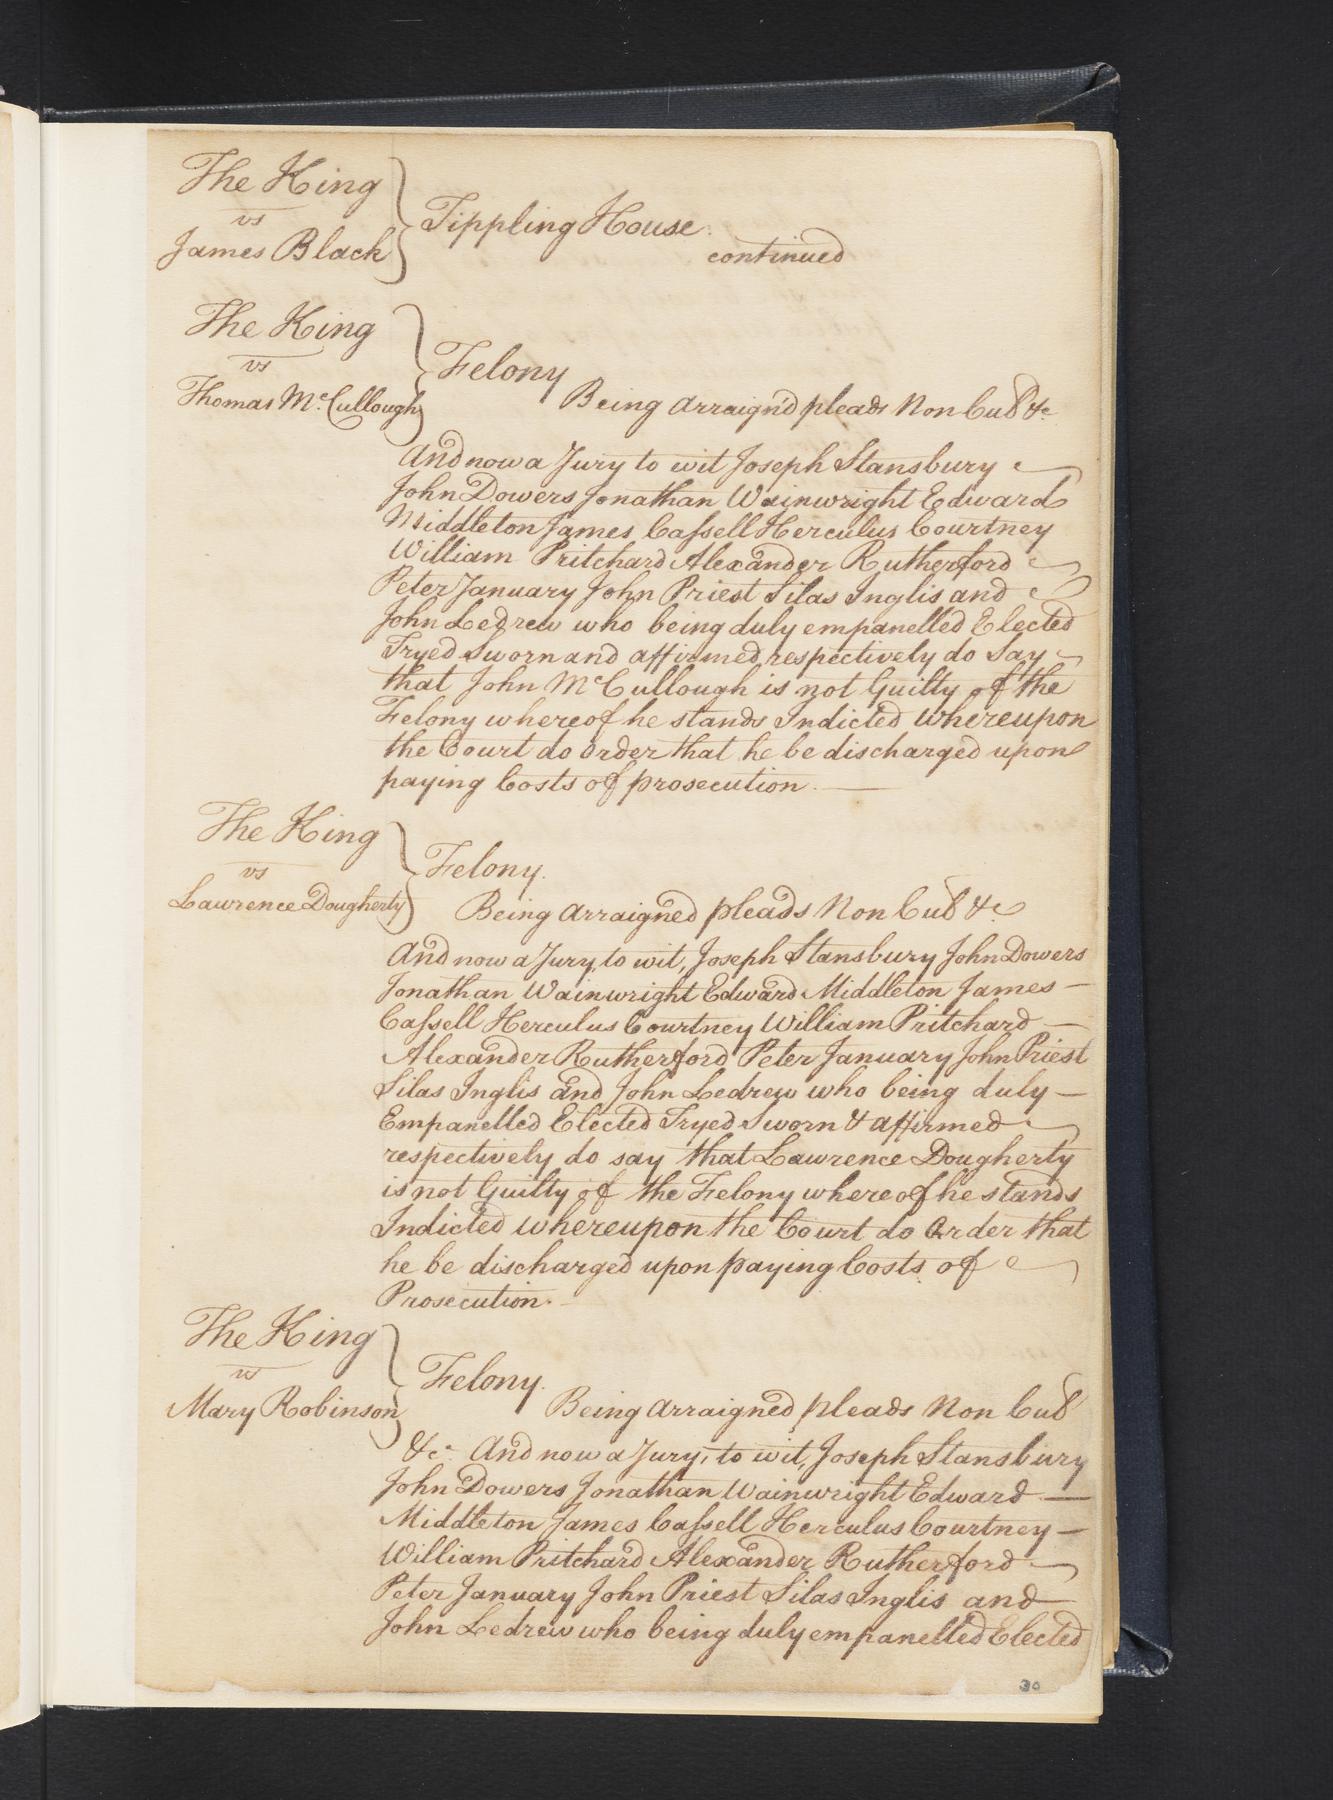 The King
vs
James Black
Tippling House.
continued
The King
vs
Thomas McCullough
Felony
Being arraign'd pleads Non Cul &c
And now a Jury to wit Joseph Stansbury
John Dowers Jonathan Wainwright Edward
Middleton James Cassell Herculus Courtney
William Pritchard Alexander Rutherford
Peter January John Priest Silas Inglis and
John Ledrew who being duly empanelled Elected
Tryed Sworn and affirmed respectively do Say
that John McCullough is not Guilty of the
Felony whereof he stands Indicted whereupon
the Court do order that he be discharged upon
paying Costs of prosecution.
The King
vs
Lawrence Dougherty
Felony.
Being arraigned pleads Non Cul &c
And now a Jury, to wit, Joseph Stansbury John Dowers
Jonathan Wainwright Edward Middleton James
Cassell Herculus Courtney William Pritchard
Alexander Rutherford Peter January John Priest
Silas Inglis and John Ledrew who being duly
Empanelled Elected Tryed Sworn & affirmed
respectively do say that Lawrence Dougherty
is not Guilty of the Felony whereof he stands
Indicted whereupon the Court do Order that
he be discharged upon paying Costs of
Prosecution.
The King
vs
Mary Robinson
Felony.
Being arraigned pleads Non Cul
&c And now a Jury, to wit, Joseph Stansbury
John Dowers Jonathan Wainwright Edward
Middleton James Cassell Herculus Courtney
William Pritchard Alexander Rutherford
Peter January John Priest Silas Inglis and
John Ledrew who being duly empanelled Elected
30